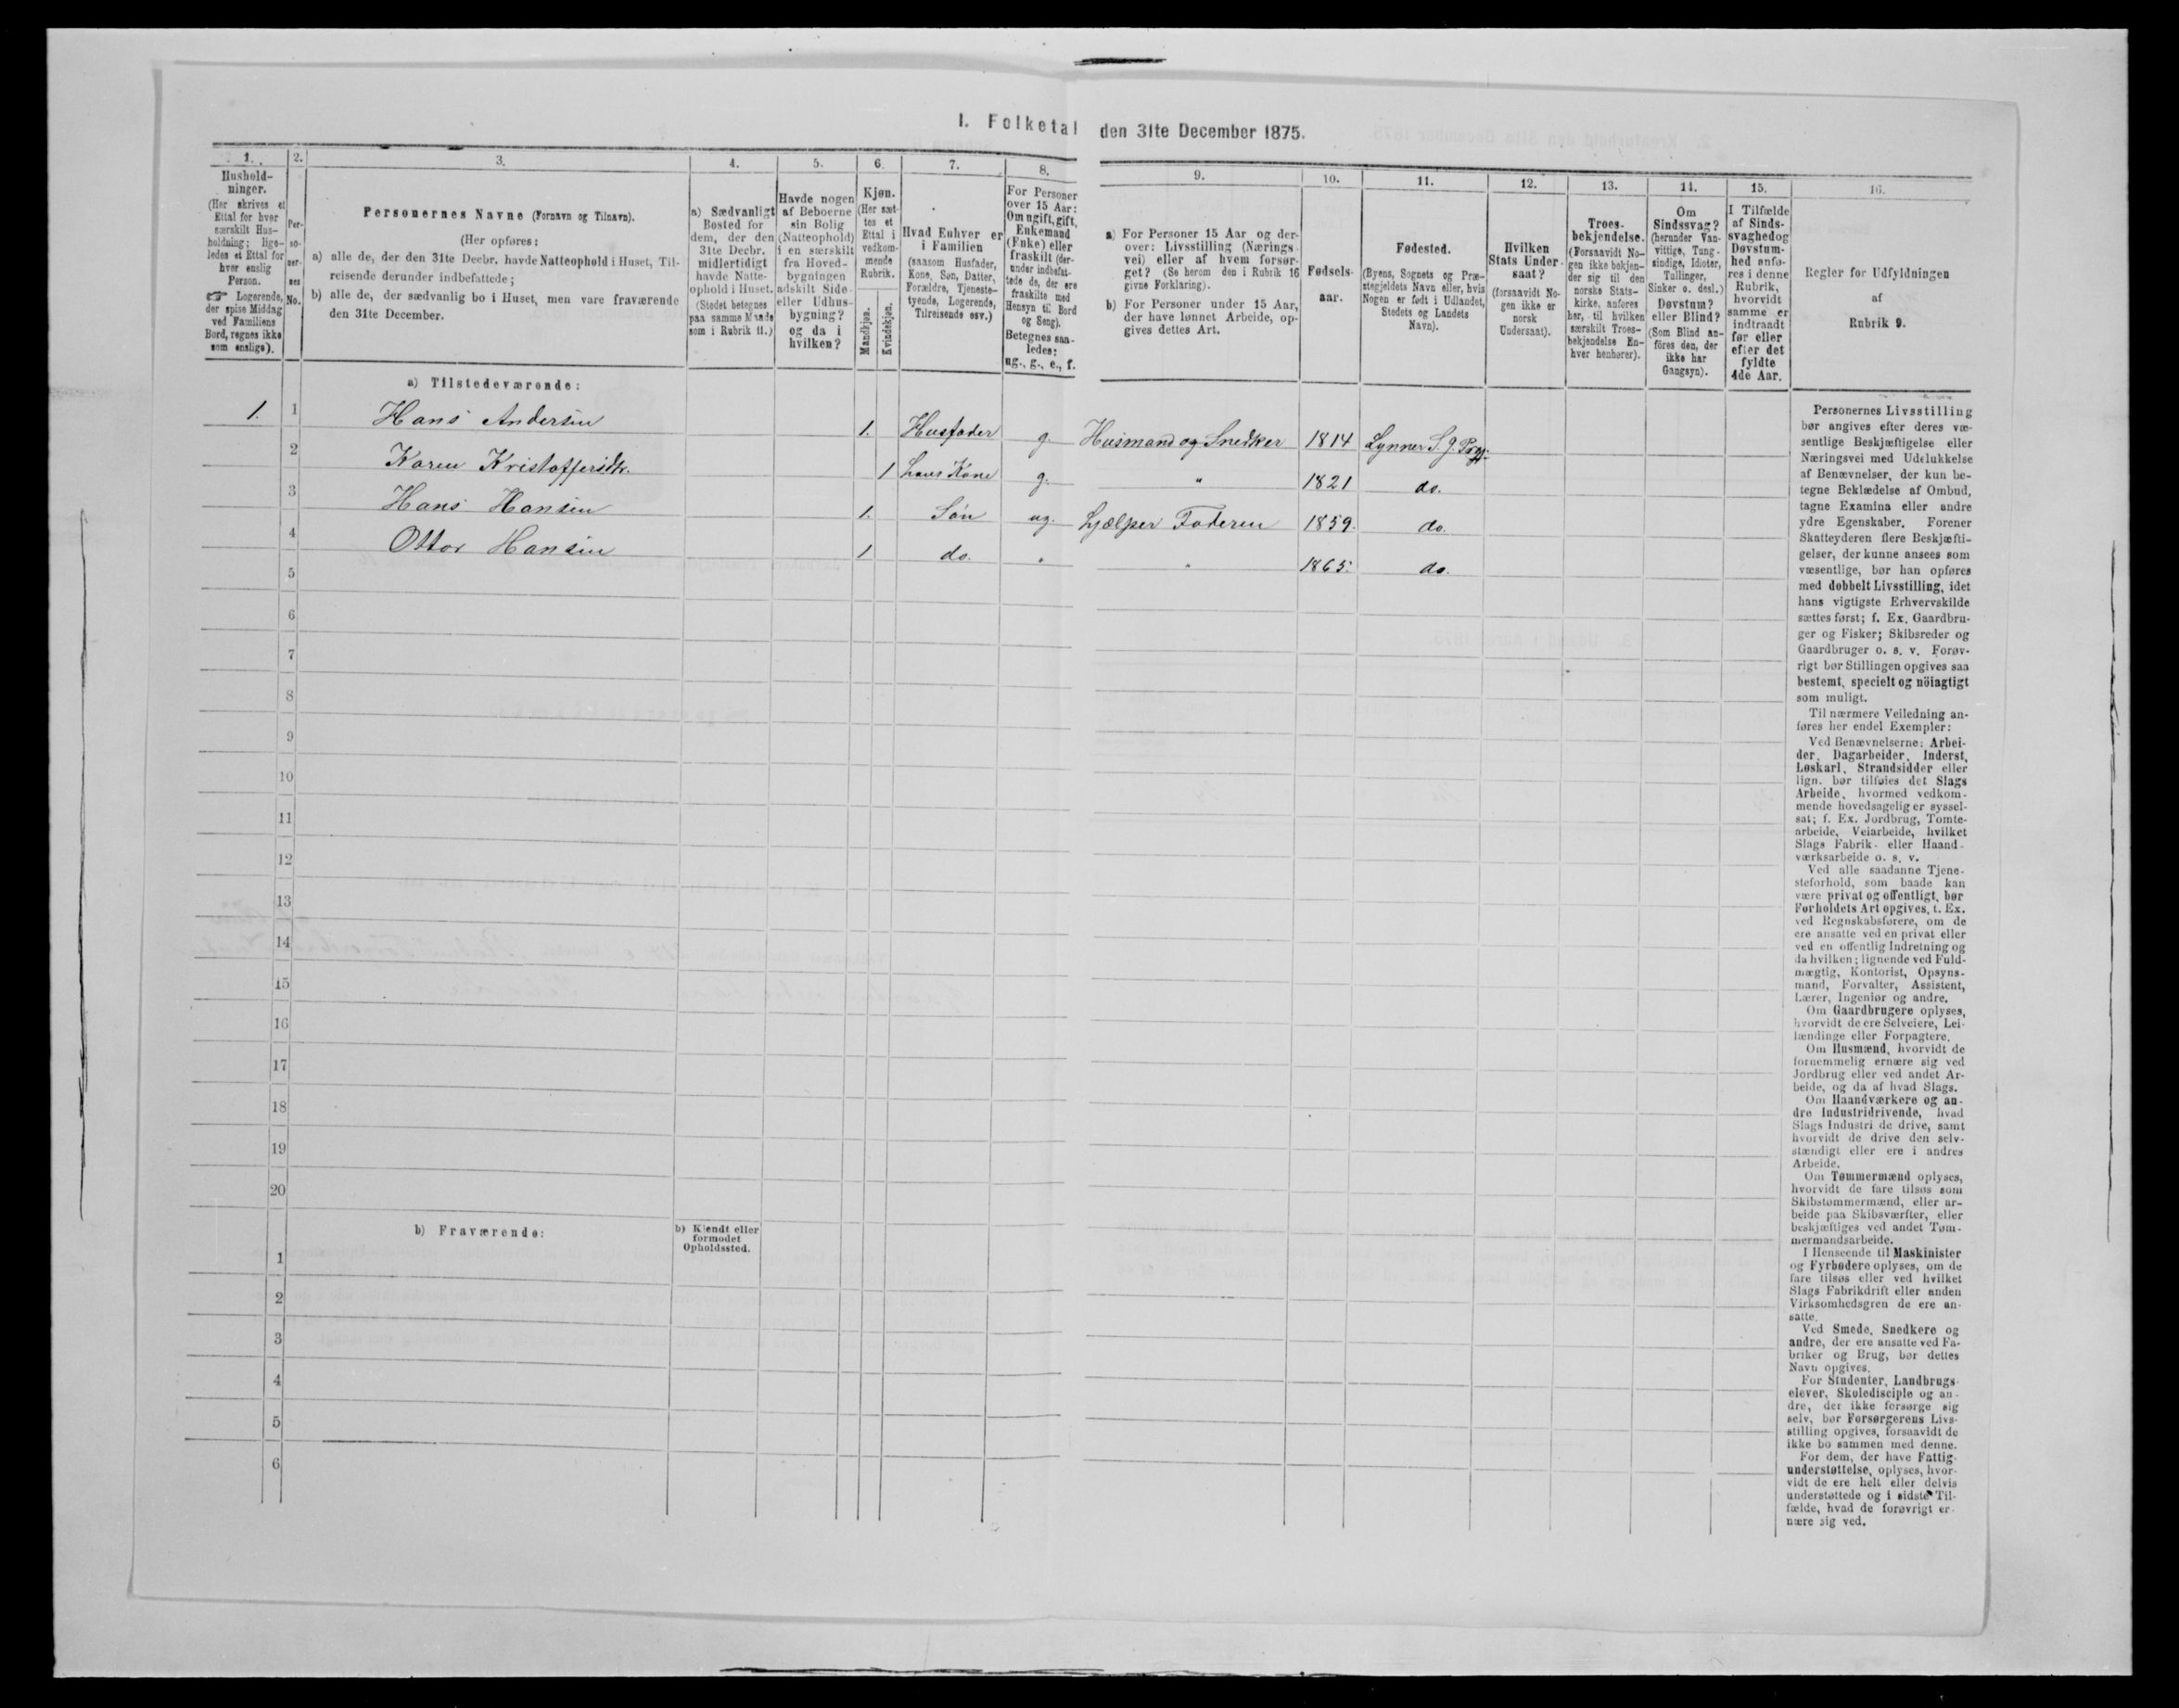 I. Folketal den 31te December 1875.
1.
Hushold-
ninger.
(Her skrives et
Ettal for hver
særskilt Hus-
holdning; lige-
ledes et Ettal for
hver enslig
Person.
☞ Logerende,
der spise Middag
ved Familiens
Bord, regnes ikke
som enslige).
2.
Per-
so-
ner-
nes
No.
3.
Personernes Navne (Fornavn og Tilnavn).
(Her opføres:
a) alle de, der den 31te Decbr. havde Natteophold i Huset, Til-
reisende derunder indbefattede;
b) alle de, der sædvanlig bo i Huset, men vare fraværende
den 31te December.
4.
a) Sædvanligt
Bosted for
dem, der den
31te Decbr.
midlertidigt
havde Natte-
ophold i Huset.
(Stedet betegnes
paa samme Maade
som i Rubrik 11.)
5.
Havde nogen
af Beboerne
sin Bolig
(Natteophold)
i en særskilt
fra Hoved-
bygningen
adskilt Side-
eller Udhus-
bygning?
og da i
hvilken?
6.
Kjøn.
(Her sæt-
tes et
Ettal i
vedkom-
mende
Rubrik.
Mandkjøn.
Kvindekjøn.
7.
Hvad Enhver er
i Familien
(saasom Husfader,
Kone, Søn, Datter,
Forældre, Tjeneste-
tyende, Logerende,
Tilreisende osv.)
8.
For Personer
over 15 Aar:
Om ugift, gift,
Enkemand
(Enke) eller
fraskilt (der-
under indbefat-
tede de, der ere
fraskilte med
Hensyn til Bord
og Seng).
Betegnes saa-
ledes:
ug., g., e., f.
9.
a) For Personer 15 Aar og der-
over: Livsstilling (Nærings-
vei) eller af hvem forsør-
get? (Se herom den i Rubrik 16
givne Forklaring).
b) For Personer under 15 Aar,
der have lønnet Arbeide, op-
gives dettes Art.
10.
Fødsels-
aar.
11.
Fødested.
(Byens, Sognets og Præ-
stegjeldets Navn eller, hvis
Nogen er født i Udlandet,
Stedets og Landets
Navn).
12.
Hvilken
Stats Under-
saat?
(forsaavidt No-
gen ikke er
norsk
Undersaat).
13.
Troes-
bekjendelse.
(Forsaavidt No-
gen ikke bekjen-
der sig til den
norske Stats-
kirke, anføres
her, til hvilken
særskilt Troes-
bekjendelse En-
hver henhører).
14.
Om
Sindssvag?
(herunder Van-
vittige, Tung-
sindige, Idioter,
Tullinger,
Sinker o. desl.)
Døvstum?
eller Blind?
(Som Blind an-
føres den, der
ikke har
Gangsyn).
15.
I Tilfælde
af Sinds-
svaghed og
Døvstum-
hed anfø-
res i denne
Rubrik,
hvorvidt
samme er
indtraadt
før eller
efter det
fyldte
4de Aar.
16.
Regler for Udfyldningen
af
Rubrik 9.
a) Tilstedeværende:
1. 1 Hans Andersen 1. Husfader g. Husmand og Snedker 1814 Lynner S. J. Prgj.
2 Karen Kristoffersdtr. 1 hans Kone g. " 1821 do.
3 Hans Hansen 1. Søn ug. hjælper Faderen 1859. do.
4 Ottor Hansen 1 do. " " 1865. do.
5
6
7
8
9
10
11
12
13
14
15
16
17
18
19
20
b) Fraværende:
b) Kjendt eller
formodet
Opholdssted.
1
2
3
4
5
6
Personernes Livsstilling
bør angives efter deres væ-
sentlige Beskjæftigelse eller
Næringsvei med Udelukkelse
af Benævnelser, der kun be-
tegne Beklædelse af Ombud,
tagne Examina eller andre
ydre Egenskaber. Forener
Skatteyderen flere Beskjæfti-
gelser, der kunne ansees som
væsentlige, bør han opføres
med dobbelt Livsstilling, idet
hans vigtigste Erhvervskilde
sættes først; f. Ex. Gaardbru-
ger og Fisker; Skibsreder og
Gaardbruger o. s. v. Forøv-
rigt bør Stillingen opgives saa
bestemt, specielt og nöiagtigt
som muligt.
Til nærmere Veiledning an-
føres her endel Exempler:
Ved Benævnelserne: Arbei-
der, Dagarbeider, Inderst,
Løskarl, Strandsidder eller
lign. bør tilføies det Slags
Arbeide, hvormed vedkom-
mende hovedsagelig er syssel-
sat; f. Ex. Jordbrug, Tomte-
arbeide, Veiarbeide, hvilket
Slags Fabrik- eller Haand-
værksarbeide o. s. v.
Ved alle saadanne Tjene-
steforhold, som baade kan
være privat og offentligt, bør
Forholdets Art opgives, t. Ex.
ved Regnskabsførere, om de
ere ansatte ved en privat eller
ved en offentlig Indretning og
da hvilken; lignende ved Fuld-
mægtig, Kontorist, Opsyns-
mand, Forvalter, Assistent,
Lærer, Ingeniør og andre.
Om Gaardbrugere oplyses,
hvorvidt de ere Selveiere, Lei-
lændinge eller Forpagtere.
Om Husmænd, hvorvidt de
fornemmelig ernære sig ved
Jordbrug eller ved andet Ar-
beide, og da af hvad Slags.
Om Haandværkere og an-
dre Industridrivende, hvad
Slags Industri de drive, samt
hvorvidt de drive den selv-
stændigt eller ere i andres
Arbeide.
Om Tømmermænd oplyses,
hvorvidt de fare tilsøs som
Skibstømmermænd, eller ar-
beide paa Skibsværfter, eller
beskjæftiges ved andet Tøm-
mermandsarbeide.
I Henseende til Maskinister
og Fyrbødere oplyses, om de
fare tilsøs eller ved hvilket
Slags Fabrikdrift eller anden
Virksomhedsgren de ere an-
satte.
Ved Smede, Snedkere og
andre, der ere ansatte ved Fa-
briker og Brug, bør dettes
Navn opgives.
For Studenter, Landbrugs-
elever, Skoledisciple og an-
dre, der ikke forsørge sig
selv, bør Forsørgerens Livs-
stilling opgives, forsaavidt de
ikke bo sammen med denne.
For dem, der have Fattig-
understøttelse, oplyses, hvor-
vidt de ere helt eller delvis
understøttede og i sidste Til-
fælde, hvad de forøvrigt er-
nære sig ved.